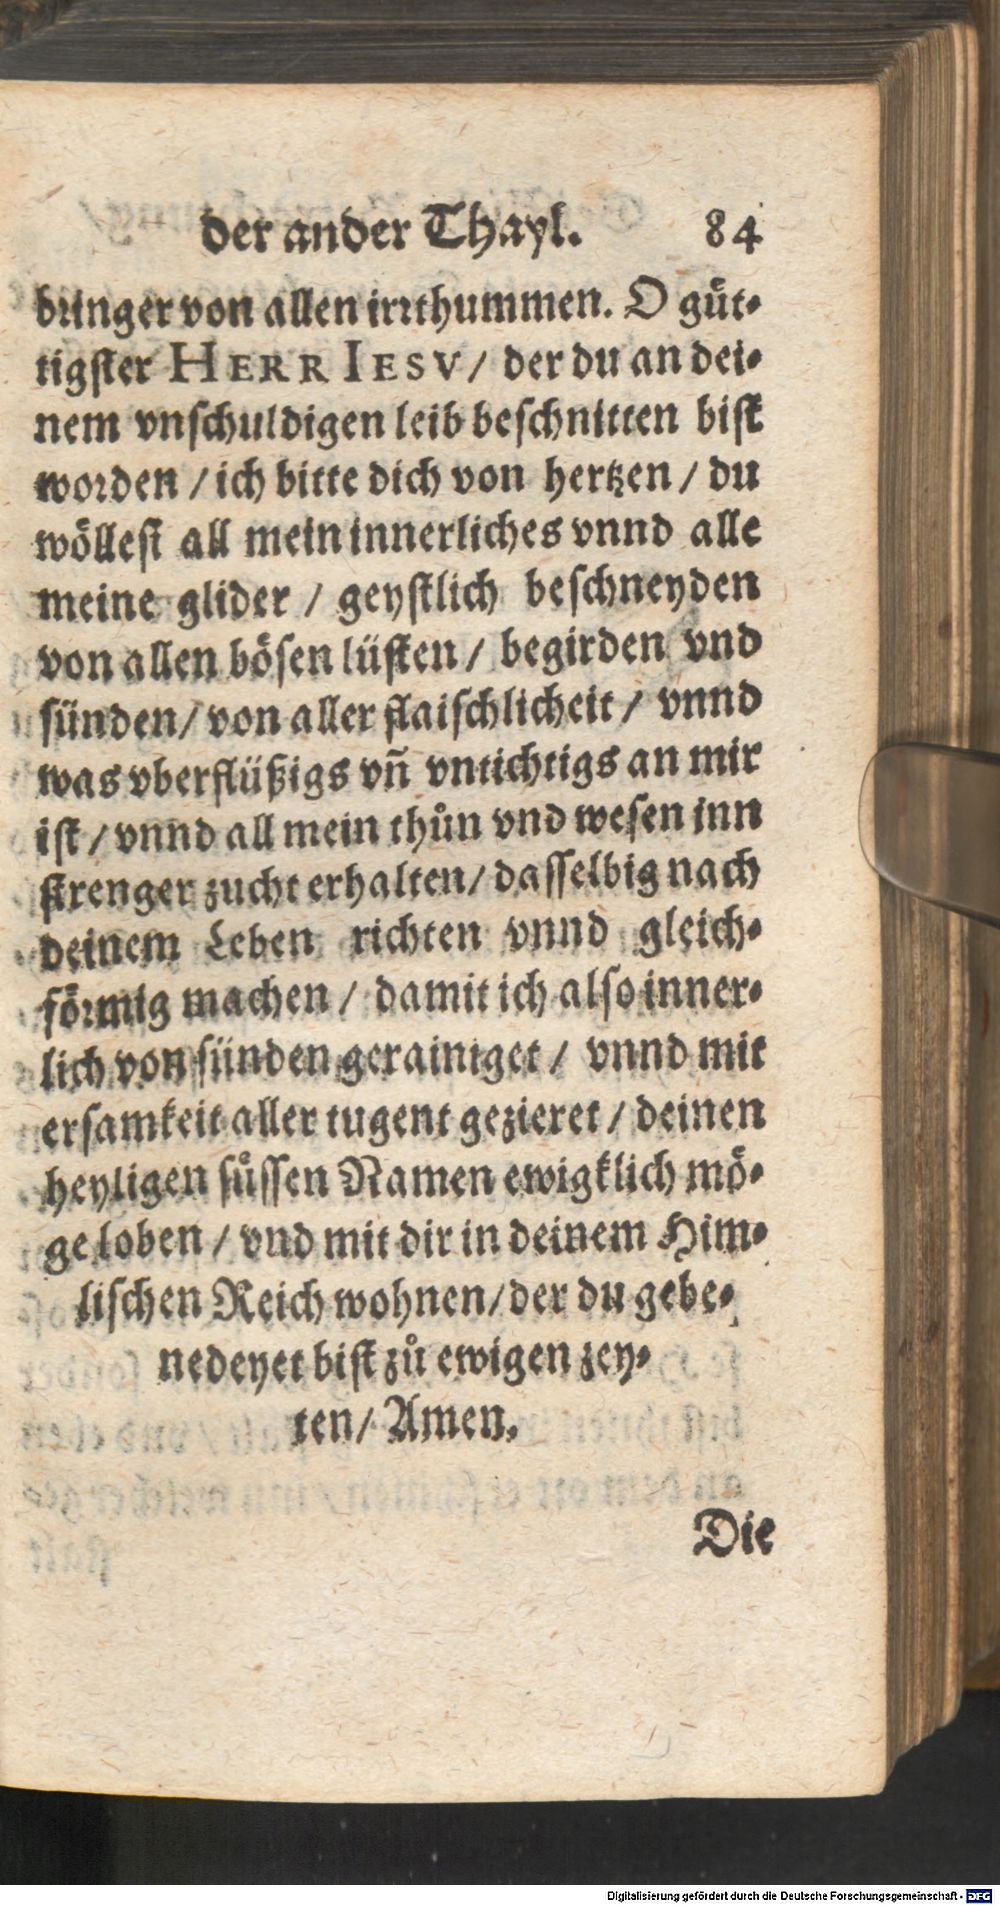 der ander Thayl. 84
bringer von allen irrthummen. O güt-
tigster HERR IESV/ der du an dei-
nem vnschuldigen leib beschnitten bist
worden / ich bitte dich von hertzen / du
wöllest all mein innerliches vnnd alle
meine glider / geystlich beschneyden
von allen bösen lüsten / begirden vnd
sünden / von aller flaischlicheit / vnnd
was vberflüßigs vñ vntichtigs an mir
ist / vnnd all mein thůn vnd wesen inn
strenger zucht erhalten / dasselbig nach
deinem Leben richten vnnd gleich-
förmig machen / damit ich also inner-
lich von sünden gerainiget / vnnd mit
ersamkeit aller tugent gezieret / deinen
heyligen sůssen Namen ewigklich mö-
ge loben / vnd mit dir in deinem Him-
lischen Reich wohnen/der du gebe-
nedeyet bist zů ewigen zey-
ten/ Amen.
Die
Digitalisierung gefördert durch die Deutsche Forschungsgemeinschaft - DFG